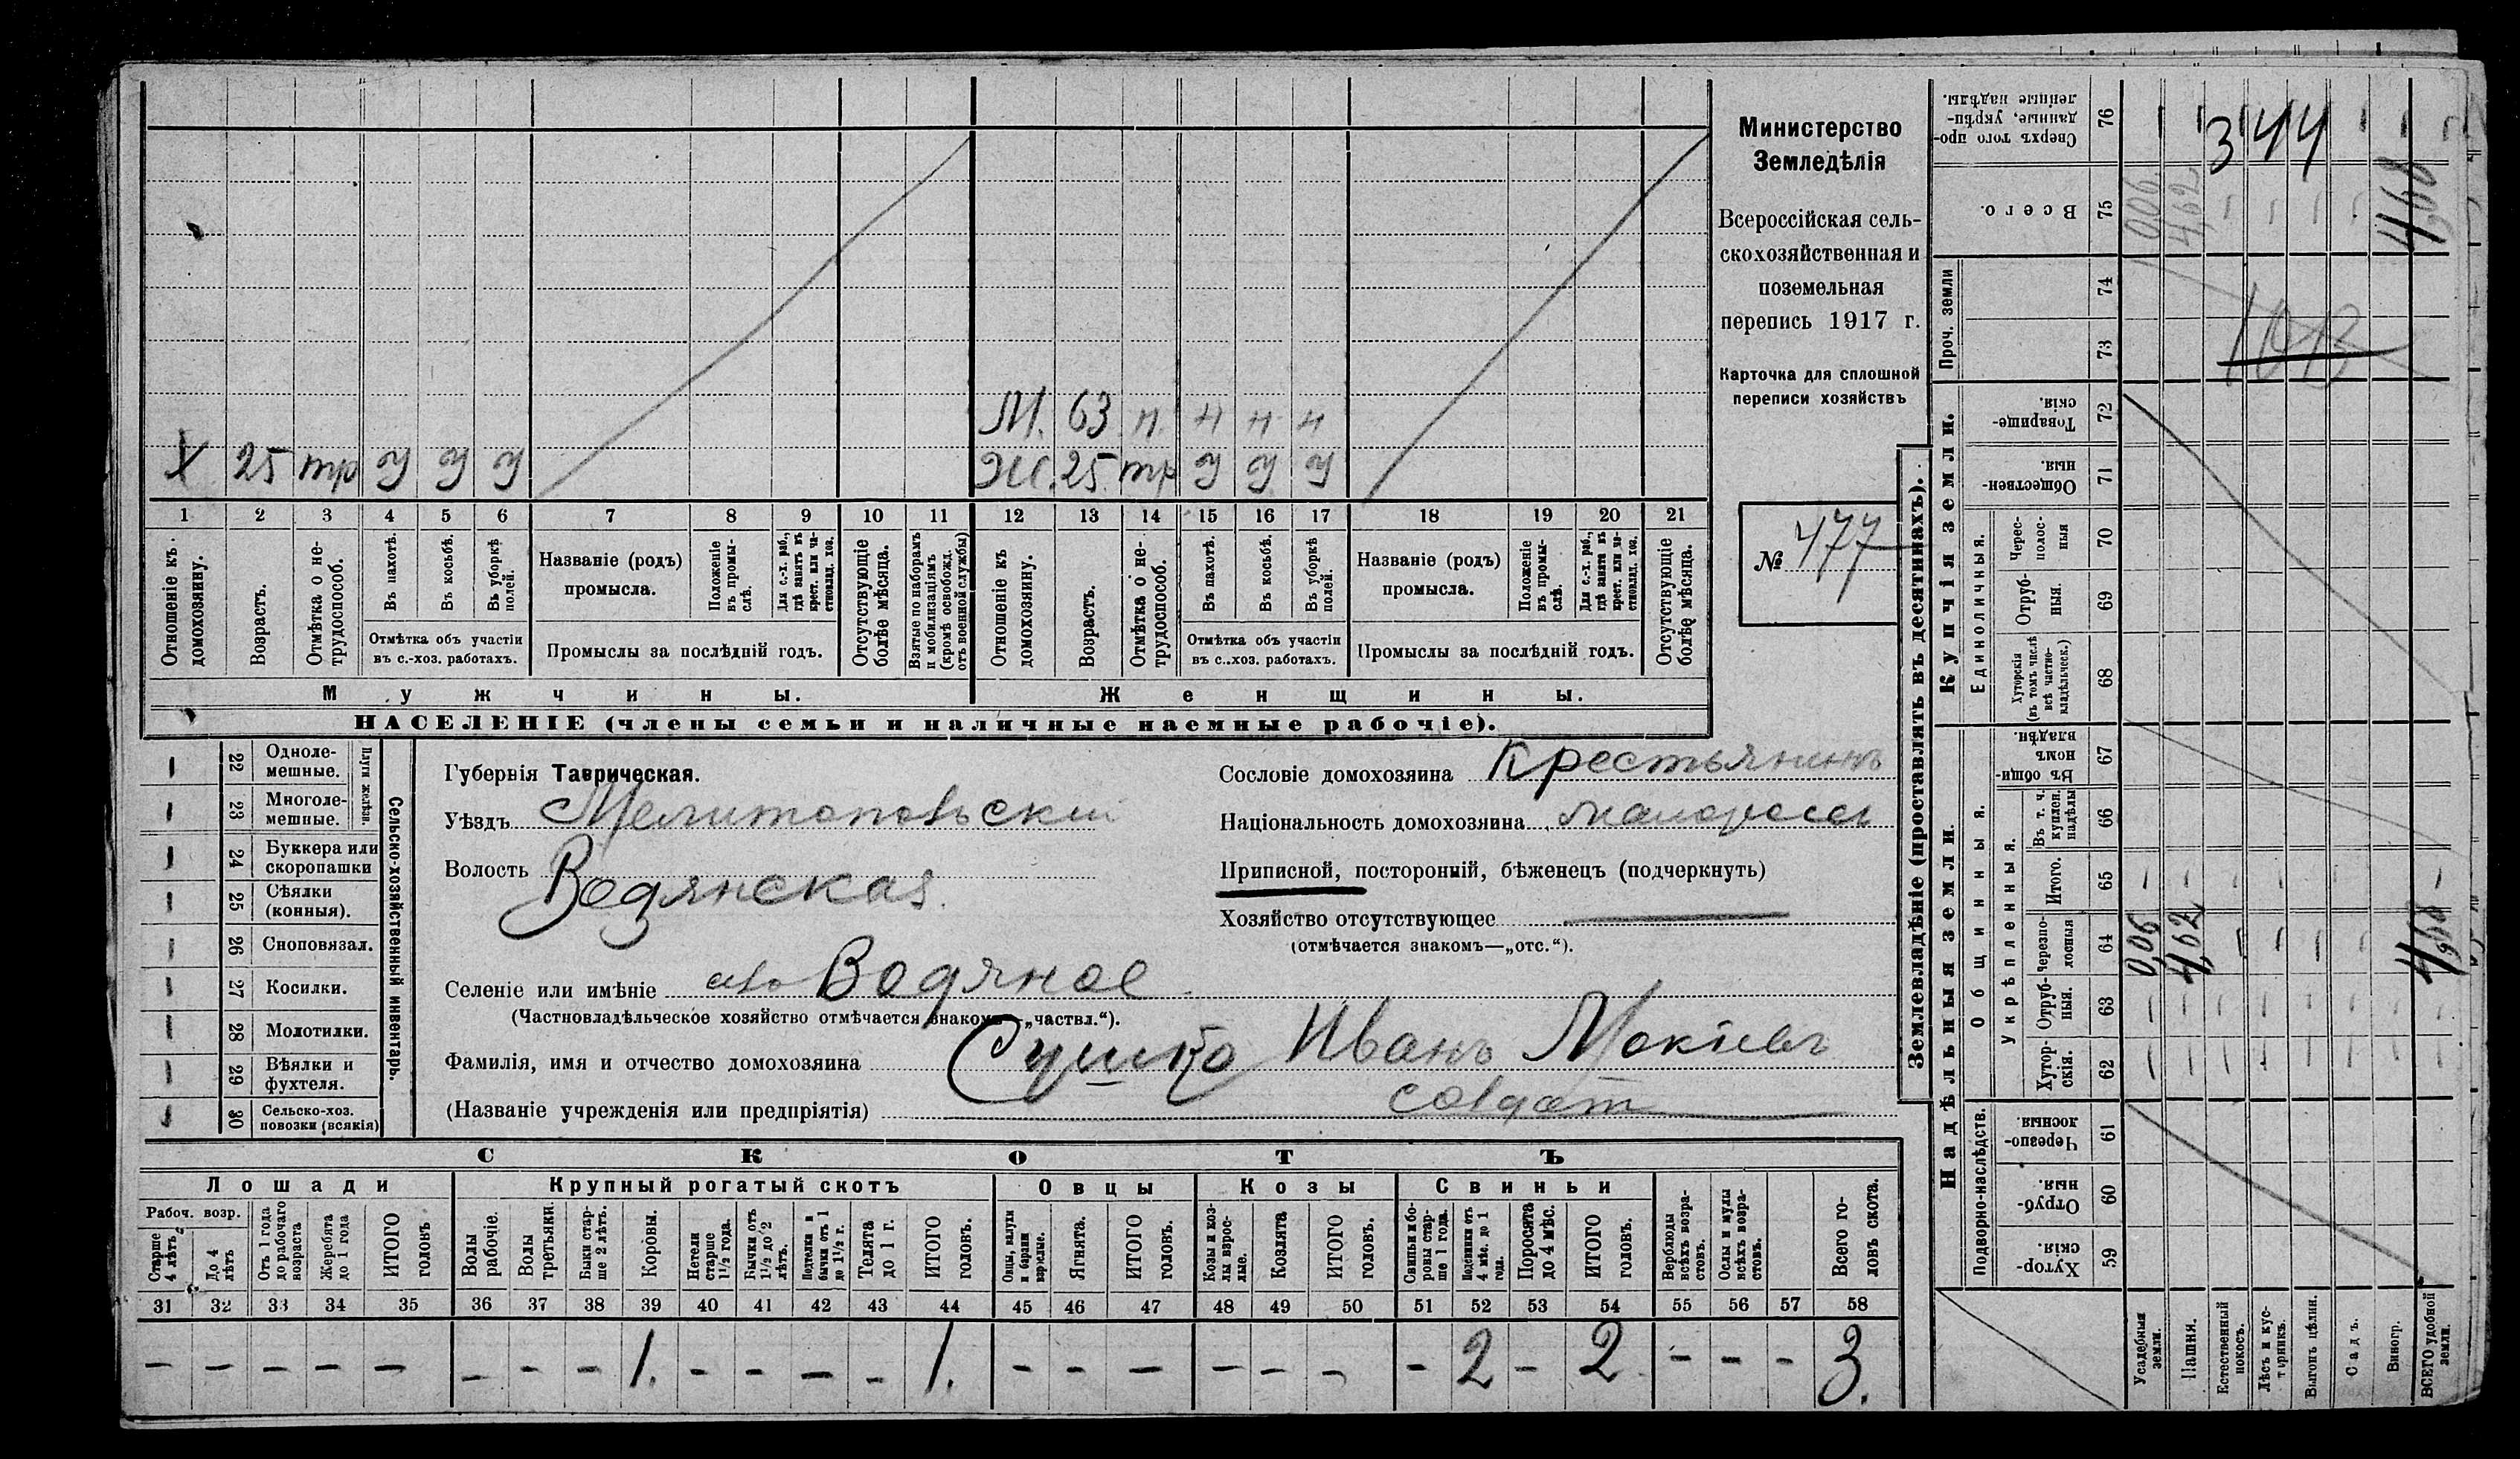 Министерство
Земледѣлія
Всероссійская сель-
скохозяйственная и
поземельная
перепись 1917 г.
Карточка для сплошной
переписи хозяйствъ
№ 477
М. 63 н. н н н
Х 25 тр У У У
Ж. 25 тр У У У
1 2 3 4 5 6 7 8 9 10 11 12 13 14 15 16 17 18 19 20 21
Отношеніе къ домохозяину.
Возрастъ.
Отмѣтка о не-трудоспособ.
Въ пахотѣ.
Въ косьбѣ.
Въ уборкѣ полей.
Отмѣтка объ участіи
въ с.-хоз. работахъ.
Названіе (родъ)
промысла.
Положеніе въ промы-слѣ.
Для с.-х. раб., гдѣ занятъ въ крест. или ча-стновлад. хоз.
Промыслы за послѣдній годъ.
Отсутствующіе болѣе мѣсяца.
Взятые по наборамъ и мобилизаціямъ (кромѣ освобожд. отъ военной службы)
Отношеніе къ домохозяину.
Возрастъ.
Отмѣтка о не-трудоспособ.
Въ пахотѣ.
Въ косьбѣ.
Въ уборкѣ полей.
Отмѣтка объ участіи
въ с..хоз. работахъ.
Названіе (родъ)
промысла.
Положеніе въ промы-слѣ.
Для с.-х. раб., гдѣ занята въ крест. или ча-стновлад. хоз.
Промыслы за послѣдній годъ.
Отсутствующіе болѣе мѣсяца.
Мужчины. Женщины.
НАСЕЛЕНІЕ (члены семьи и наличные наемные рабочіе).
Сельско-хозяйственный инвентарь.
Плуги желѣзн.
22 Одноле-мешные.
23 Многоле-мешные.
24 Буккера или скоропашки
25 Сѣялки (конныя).
26 Сноповязал.
27 Косилки.
28 Молотилки.
29 Вѣялки и фухтеля.
30 Сельско-хоз. повозки (всякія)
Губернія Таврическая.
Уѣздъ Мелитопольскій
Волость Водянская.
Селеніе или имѣніе село Водяное
(Частновладѣльческое хозяйство отмѣчается знакомъ—„частвл.“).
Фамилія, имя и отчество домохозяина Сушко Иванъ Мокіевъ
(Названіе учрежденія или предпріятія) солдат
Сословіе домохозяина Крестьянинъ
Національность домохозяина малороссъ
Приписной, посторонній, бѣженецъ (подчеркнуть)
Хозяйство отсутствующее
(отмѣчается знакомъ—„отс.“).
СКОТЪ
Лошади Крупный рогатый скотъ Овцы Козы Свиньи
Рабоч. возр.
Старше 4 лѣтъ
До 4 лѣтъ
Отъ 1 года до рабочаго возраста
Жеребята до 1 года
ИТОГО головъ
Волы рабочіе.
Волы третьяки.
Быки стар-ше 2 лѣтъ.
Коровы.
Нетели старше 1½ года.
Бычки отъ 1½ до 2 лѣтъ.
Подтелки и бычки отъ 1 до 1½ г.
Телята до 1 г.
ИТОГО головъ.
Овцы, валухи и бараны взрослые.
Ягнята.
ИТОГО головъ.
Козы и коз-лы взрос-лые.
Козлята
ИТОГО головъ.
Свиньи и бо-ровы стар-ше 1 года.
Подсвинки отъ 4 мѣс. до 1 года.
Поросята до 4 мѣс.
ИТОГО головъ.
Верблюды всѣхъ возра-стовъ.
Ослы и мулы всѣхъ возра-стовъ.
Всего го-ловъ скота.
31 32 33 34 35 36 37 38 39 40 41 42 43 44 45 46 47 48 49 50 51 52 53 54 55 56 57 58
– – – – – – – – 1. – – – – 1. – – – – – – – 2 – 2 – – – 3.
Землевладѣніе (проставлять въ десятинахъ).
Надѣльныя земли.
Купчія земли.
Проч. земли
Подворно-наслѣдств.
Общинныя.
Укрѣпленныя.
Единоличныя.
59 Хутор-скія.
60 Отруб-ныя.
61 Черезпо-лосныя
62 Хутор-скія.
63 Отруб-ныя.
64 Черезпо-лосныя
65 Итого.
66 Въ т. ч. куплен. надѣлы
67 Въ общи-номъ владѣн.
68 Хуторскія (въ томъ числѣ всѣ частно-владѣльческ.)
69 Отруб-ныя.
70 Черес-полос-ныя
71 Обществен-ныя.
72 Товарище-скія.
73
74
75 Всего.
76 Сверхъ того про-данные, укрѣп-ленные надѣлы.
Усадебныя земли.
Пашня.
Естественный покосъ.
Лѣсъ и кус-тарникъ.
Выгонъ цѣлин.
Садъ.
Виногр.
ВСЕГО удобной земли.
0,06 4,62 4,68
0,06 4,62 4,68
344